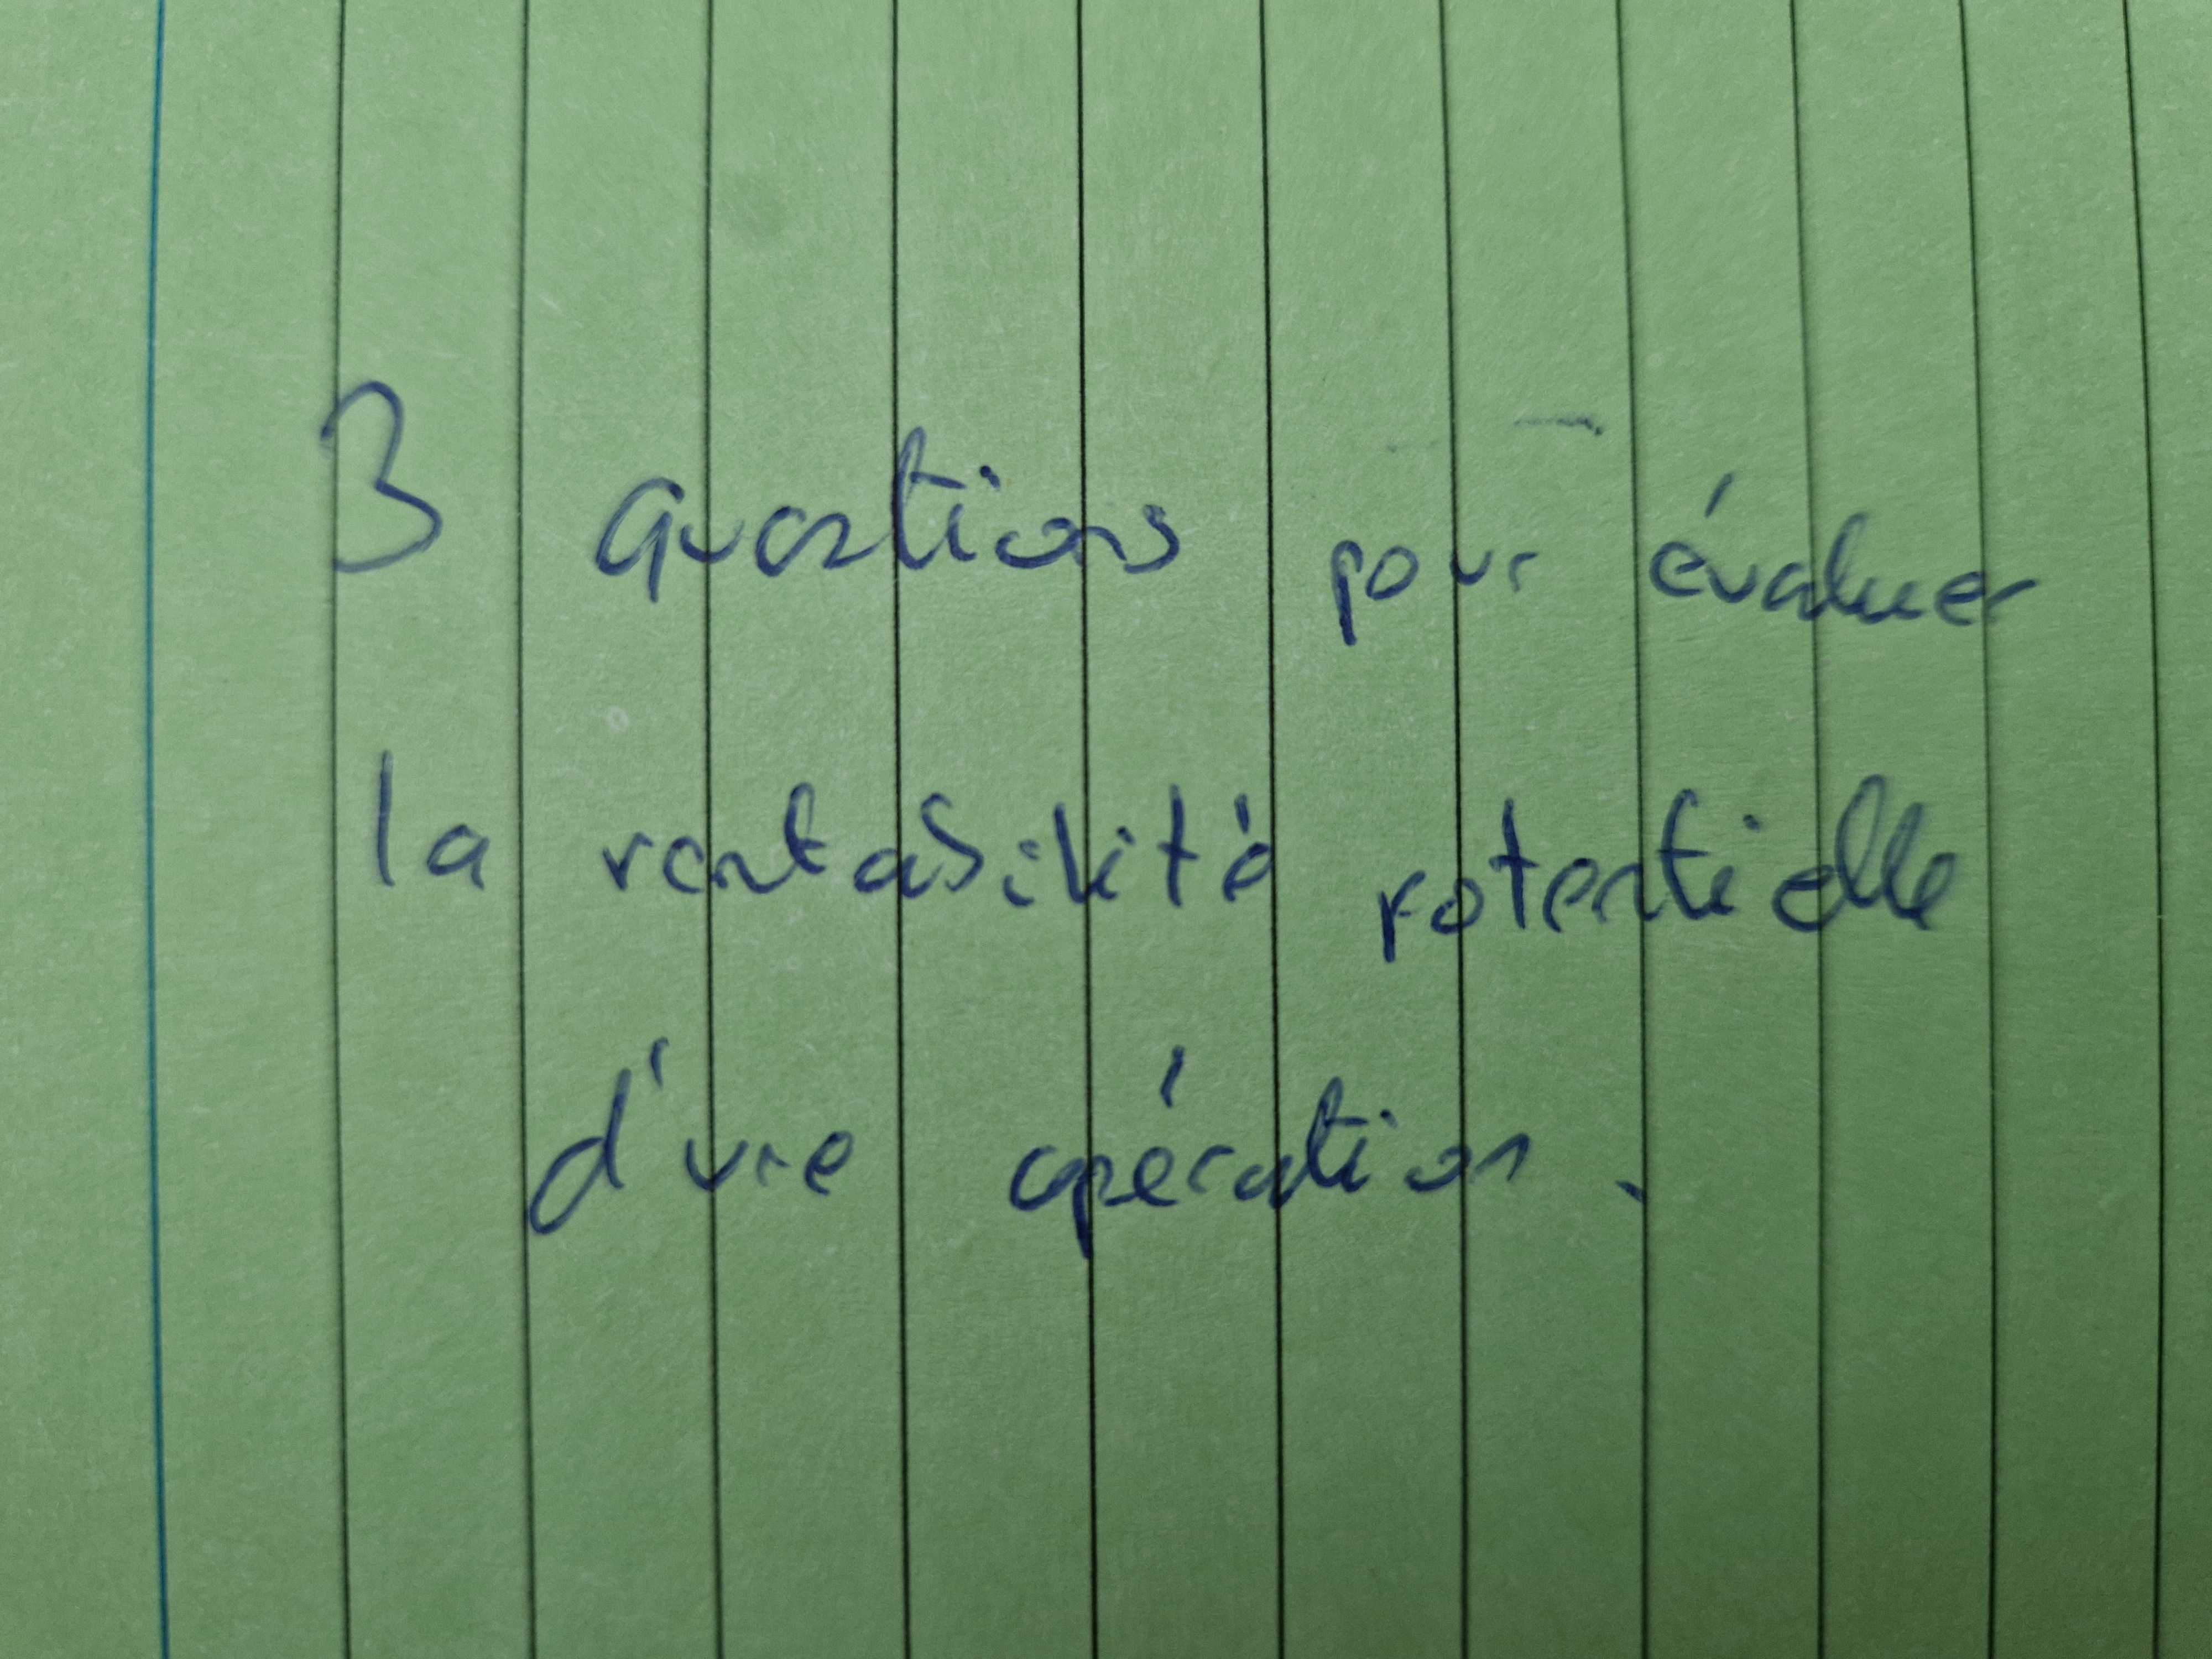 3 questions pour évaluer
la rentabilité potentielle
d'une opération.